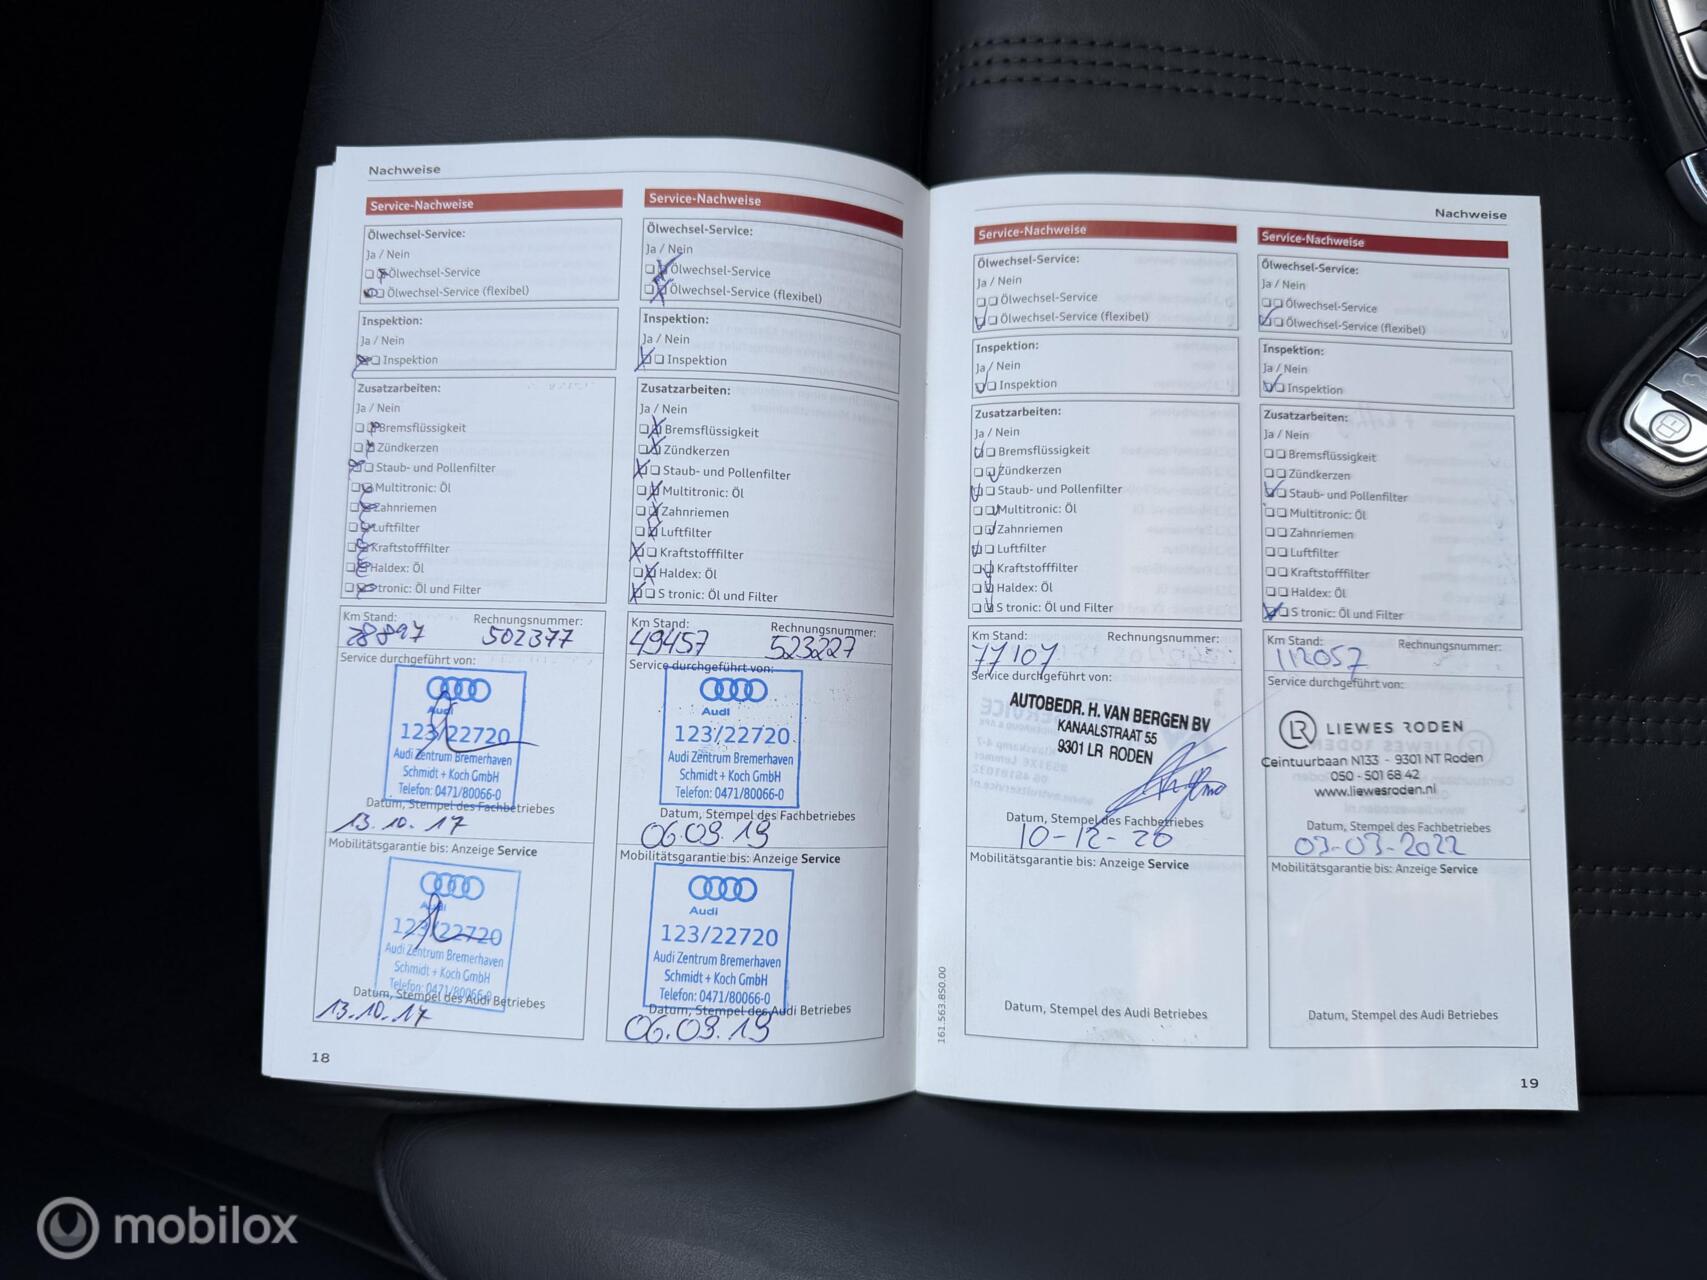 Nachweise
Service-Nachweise
Ölwechsel-Service:
Ja / Nein
Ölwechsel-Service
Ölwechsel-Service (flexibel)
Inspektion:
Ja / Nein
Inspektion
Zusatzarbeiten:
Ja / Nein
Bremsflüssigkeit
Zündkerzen
Staub- und Pollenfilter
Multitronic: Öl
Zahnriemen
Luftfilter
Kraftstofffilter
Haldex: Öl
S tronic: Öl und Filter
Km Stand: Rechnungsnummer:
28897 502377
Service durchgeführt von:
Audi
123/22720
Audi Zentrum Bremerhaven
Schmidt + Koch GmbH
Telefon: 0471/80066-0
Datum, Stempel des Fachbetriebes
13.10.17
Mobilitätsgarantie bis: Anzeige Service
Audi
123/22720
Audi Zentrum Bremerhaven
Schmidt + Koch GmbH
Telefon: 0471/80066-0
Datum, Stempel des Audi Betriebes
13.10.17
18
Service-Nachweise
Ölwechsel-Service:
Ja / Nein
Ölwechsel-Service
Ölwechsel-Service (flexibel)
Inspektion:
Ja / Nein
Inspektion
Zusatzarbeiten:
Ja / Nein
Bremsflüssigkeit
Zündkerzen
Staub- und Pollenfilter
Multitronic: Öl
Zahnriemen
Luftfilter
Kraftstofffilter
Haldex: Öl
S tronic: Öl und Filter
Km Stand: Rechnungsnummer:
49457 523227
Service durchgeführt von:
Audi
123/22720
Audi Zentrum Bremerhaven
Schmidt + Koch GmbH
Telefon: 0471/80066-0
Datum, Stempel des Fachbetriebes
06.09.19
Mobilitätsgarantie bis: Anzeige Service
Audi
123/22720
Audi Zentrum Bremerhaven
Schmidt + Koch GmbH
Telefon: 0471/80066-0
Datum, Stempel des Audi Betriebes
06.09.19
Nachweise
Service-Nachweise
Ölwechsel-Service:
Ja / Nein
Ölwechsel-Service
Ölwechsel-Service (flexibel)
Inspektion:
Ja / Nein
Inspektion
Zusatzarbeiten:
Ja / Nein
Bremsflüssigkeit
Zündkerzen
Staub- und Pollenfilter
Multitronic: Öl
Zahnriemen
Luftfilter
Kraftstofffilter
Haldex: Öl
S tronic: Öl und Filter
Km Stand: Rechnungsnummer:
77107
Service durchgeführt von:
AUTOBEDR. H. VAN BERGEN BV
KANAALSTRAAT 55
9301 LR RODEN
Datum, Stempel des Fachbetriebes
10-12-20
Mobilitätsgarantie bis: Anzeige Service
Datum, Stempel des Audi Betriebes
161.563.850.00
Service-Nachweise
Ölwechsel-Service:
Ja / Nein
Ölwechsel-Service
Ölwechsel-Service (flexibel)
Inspektion:
Ja / Nein
Inspektion
Zusatzarbeiten:
Ja / Nein
Bremsflüssigkeit
Zündkerzen
Staub- und Pollenfilter
Multitronic: Öl
Zahnriemen
Luftfilter
Kraftstofffilter
Haldex: Öl
S tronic: Öl und Filter
Km Stand: Rechnungsnummer:
112057
Service durchgeführt von:
LR LIEWES RODEN
Ceintuurbaan N133 - 9301 NT Roden
050 - 501 68 42
www.liewesroden.nl
Datum, Stempel des Fachbetriebes
03-03-2022
Mobilitätsgarantie bis: Anzeige Service
Datum, Stempel des Audi Betriebes
19
mobilox